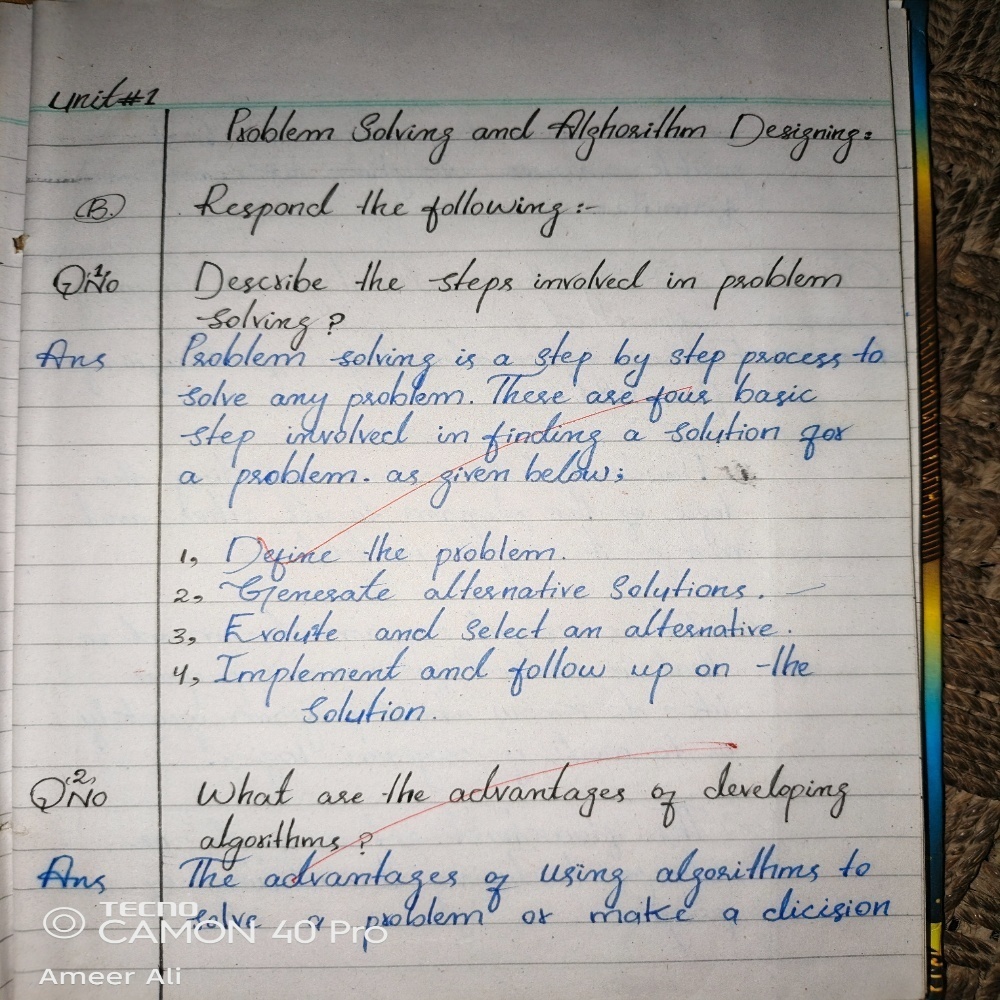 Unit #1
Problem Solving and Alghorithm Designing:
(B.) Respond the following :-
Q.No 1 Describe the steps involved in problem
solving?
Ans Problem solving is a step by step process to
solve any problem. There are four basic
step involved in finding a solution for
a problem. as given below;
1, Define the problem.
2, Generate alternative Solutions.
3, Evolute and Select an alternative.
4, Implement and follow up on the
Solution.
Q.No 2 What are the advantages of developing
algorithms?
Ans The advantages of using algorithms to
solve a problem or make a dicision
TECNO
CAMON 40 Pro
Ameer Ali